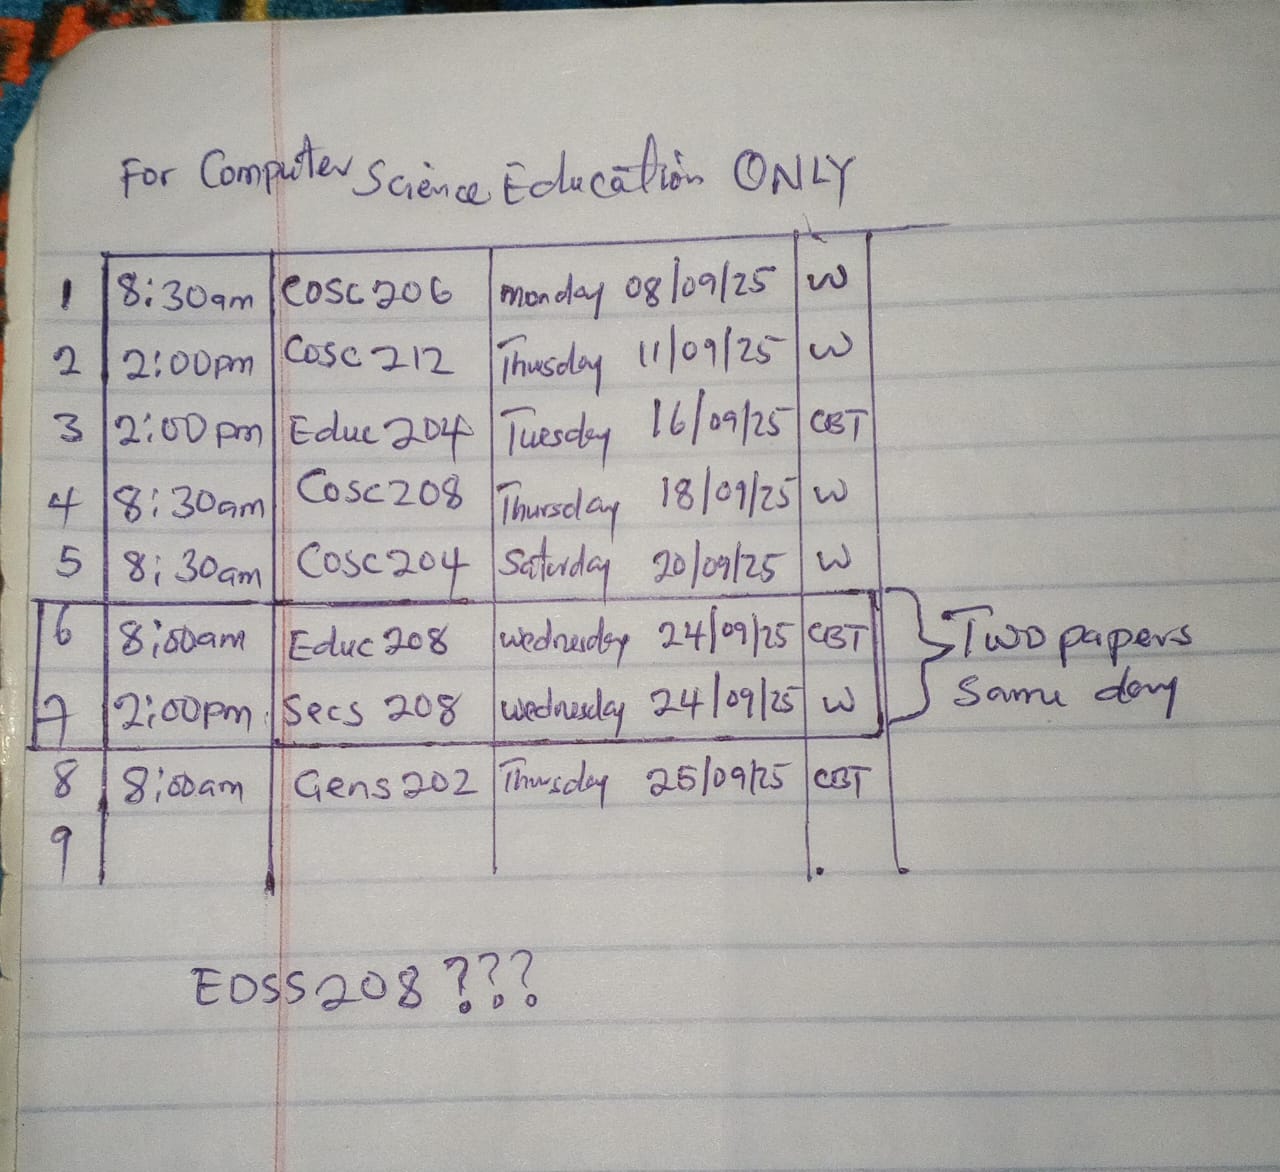 For Computer Science Education ONLY
1 8:30am COSC 206 Monday 08/09/25 W
2 2:00pm COSC 212 Thursday 11/09/25 W
3 2:00pm Educ 204 Tuesday 16/09/25 CBT
4 8:30am COSC 208 Thursday 18/09/25 W
5 8:30am COSC 204 Saturday 20/09/25 W
6 8:00am Educ 208 Wednesday 24/09/25 CBT
7 2:00pm Secs 208 Wednesday 24/09/25 W
Two papers
same day
8 8:00am Gens 202 Thursday 25/09/25 CBT
9
EDSS 208 ???